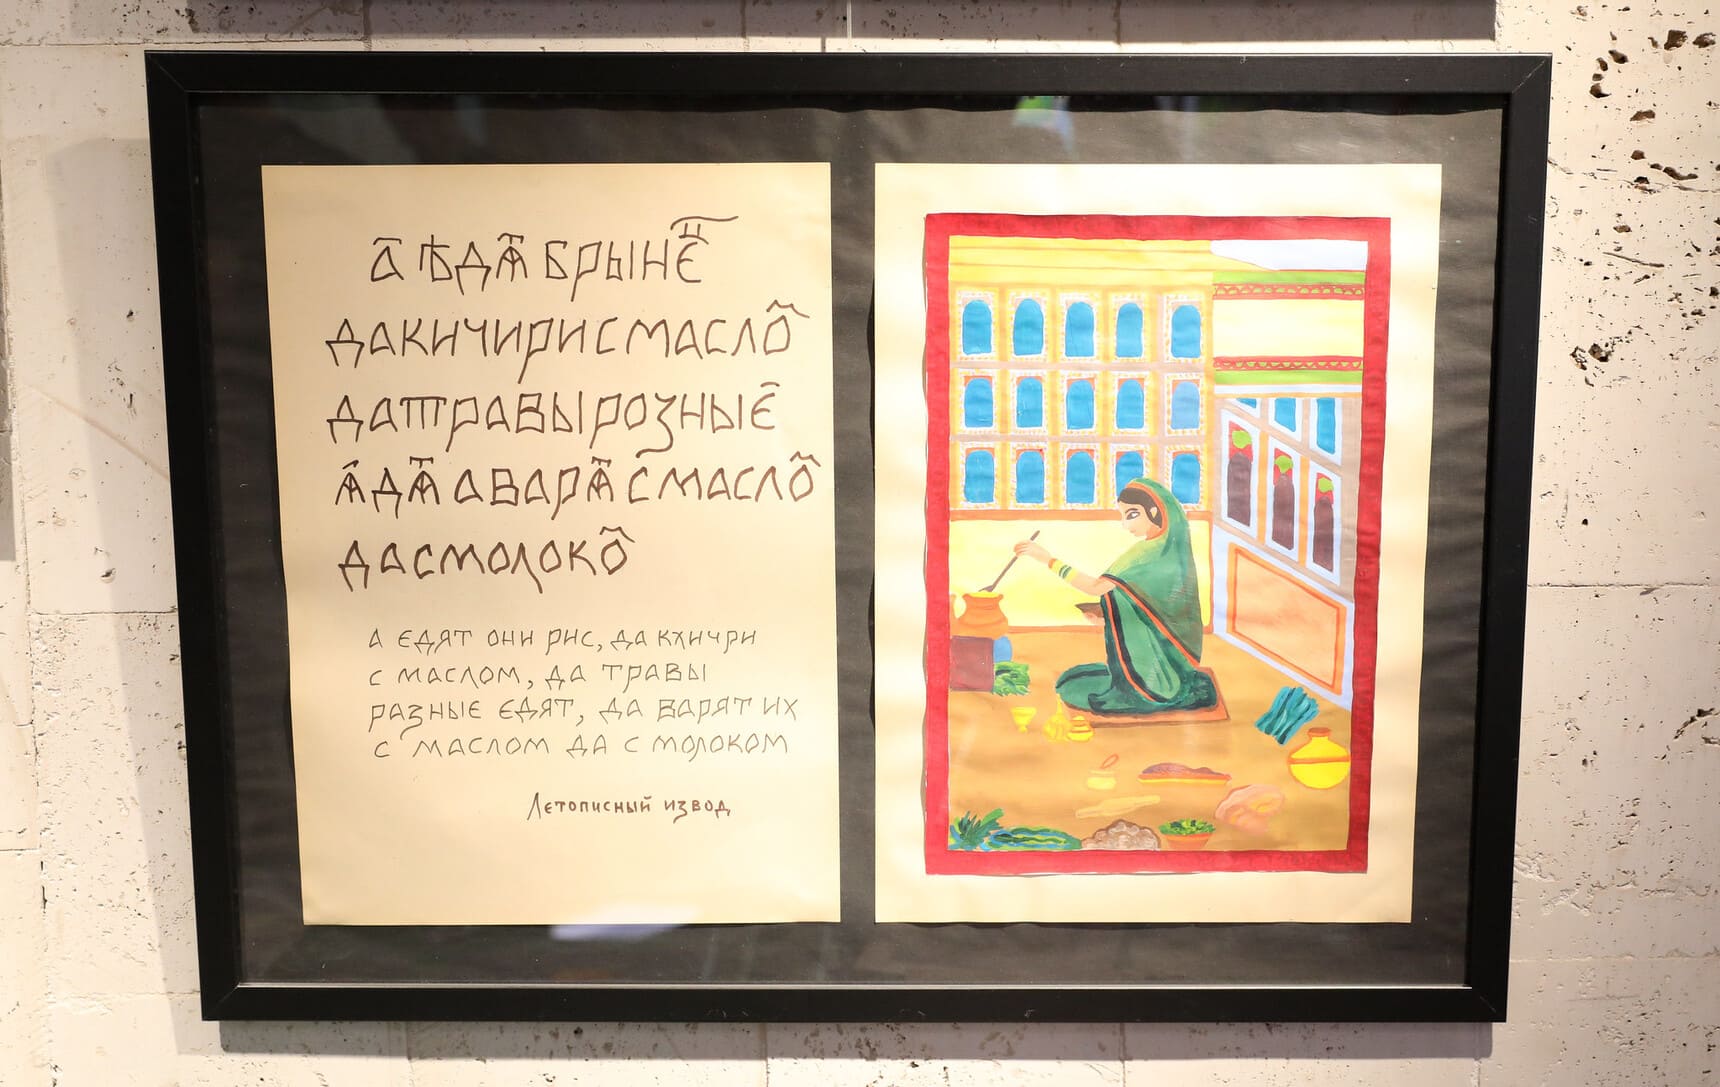 А҆ ѢДѦⷮ БРЫНЄⷰ҇
ДАКИЧИРИСМАСЛОⷨ
ДАТРАВЫРОЗНЫЄ
ѦДѦⷮ АВАРѦⷮ СМАСЛОⷨ
ДАСМОЛОКОⷨ
А ЄДЯТ ОНИ РИС, ДА КХИЧРИ
С МАСЛОМ, ДА ТРАВЫ
РАЗНЫЕ ЄДЯТ, ДА ВАРЯТ ИХ
С МАСЛОМ ДА С МОЛОКОМ
Летописный извод